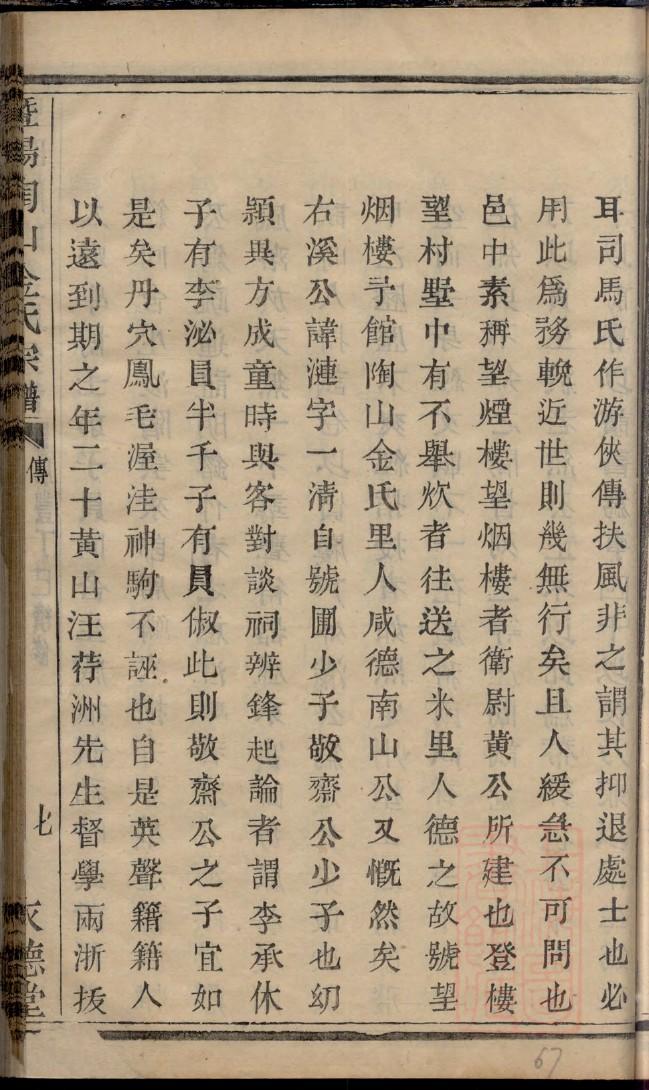 耳司馬氏作游俠傳扶風非之謂其抑退處士也必
用此爲務輓近世則幾無行矣且人緩急不可問也
邑中素稱望煙樓望烟樓者衛尉黃公所建也登樓
望村墅中有不舉炊者往送之米里人德之故號望
烟樓予館陶山金氏里人咸德南山公又慨然矣
右溪公諱漣字一清自號圃少子敬齋公少子也幼
頴異方成童時與客對談祠辨鋒起論者謂李承休
子有李泌員半千子有員俶此則敬齋公之子宜如
是矣丹穴鳳毛渥洼神駒不誣也自是英聲籍籍人
以遠到期之年二十黃山汪荇洲先生督學兩浙拔
暨陽陶山金氏宗譜
傳
七
德堂
67